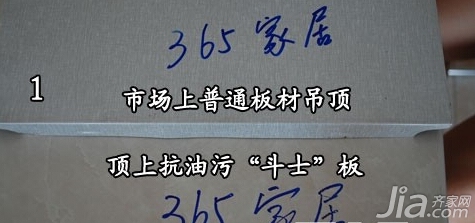 365家居
1
市场上普通板材吊顶
顶上抗油污“斗士”板
365家居
齐家网
Jia.com